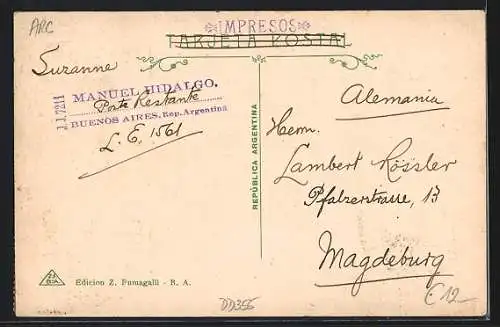 ARC
IMPRESOS
TARJETA POSTAL
Suzanne
MANUEL HIDALGO.
Poste Restante
BUENOS AIRES, Rep. Argentina
L. E. 1561
REPÚBLICA ARGENTINA
Alemania
Herrn.
Lambert Rössler
Pfälzerstrasse, 13
Magdeburg
Edicion Z. Fumagalli - B. A.
DD356
€12